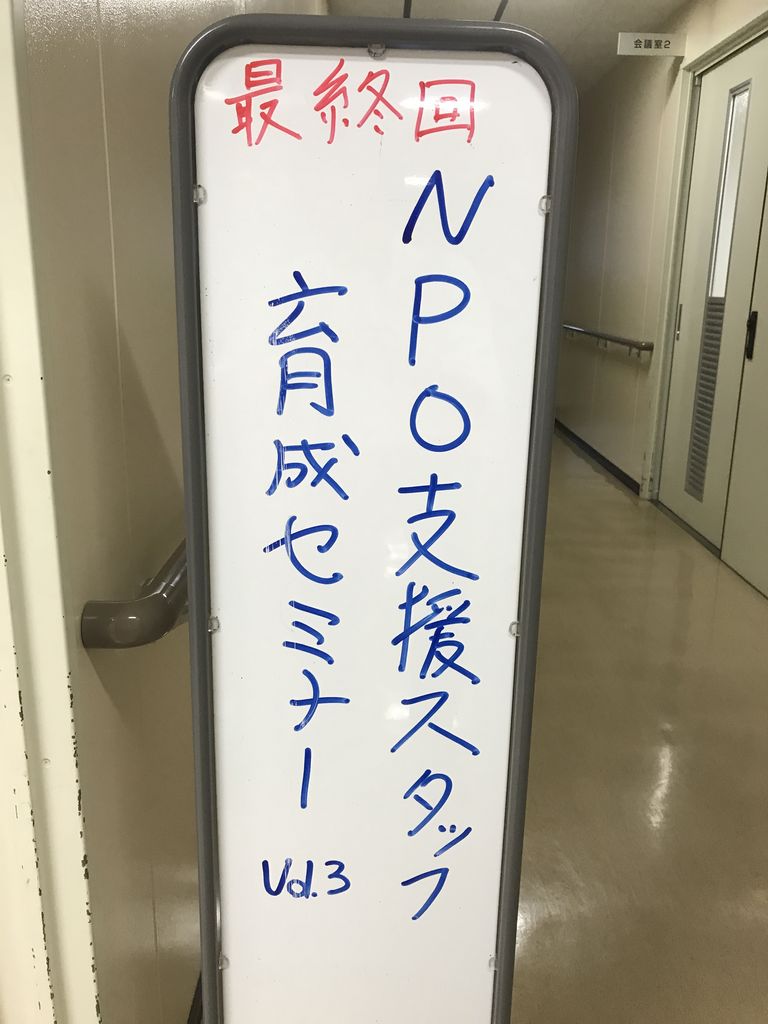 最終回
NPO支援スタッフ
育成セミナー Vol.3
会議室2